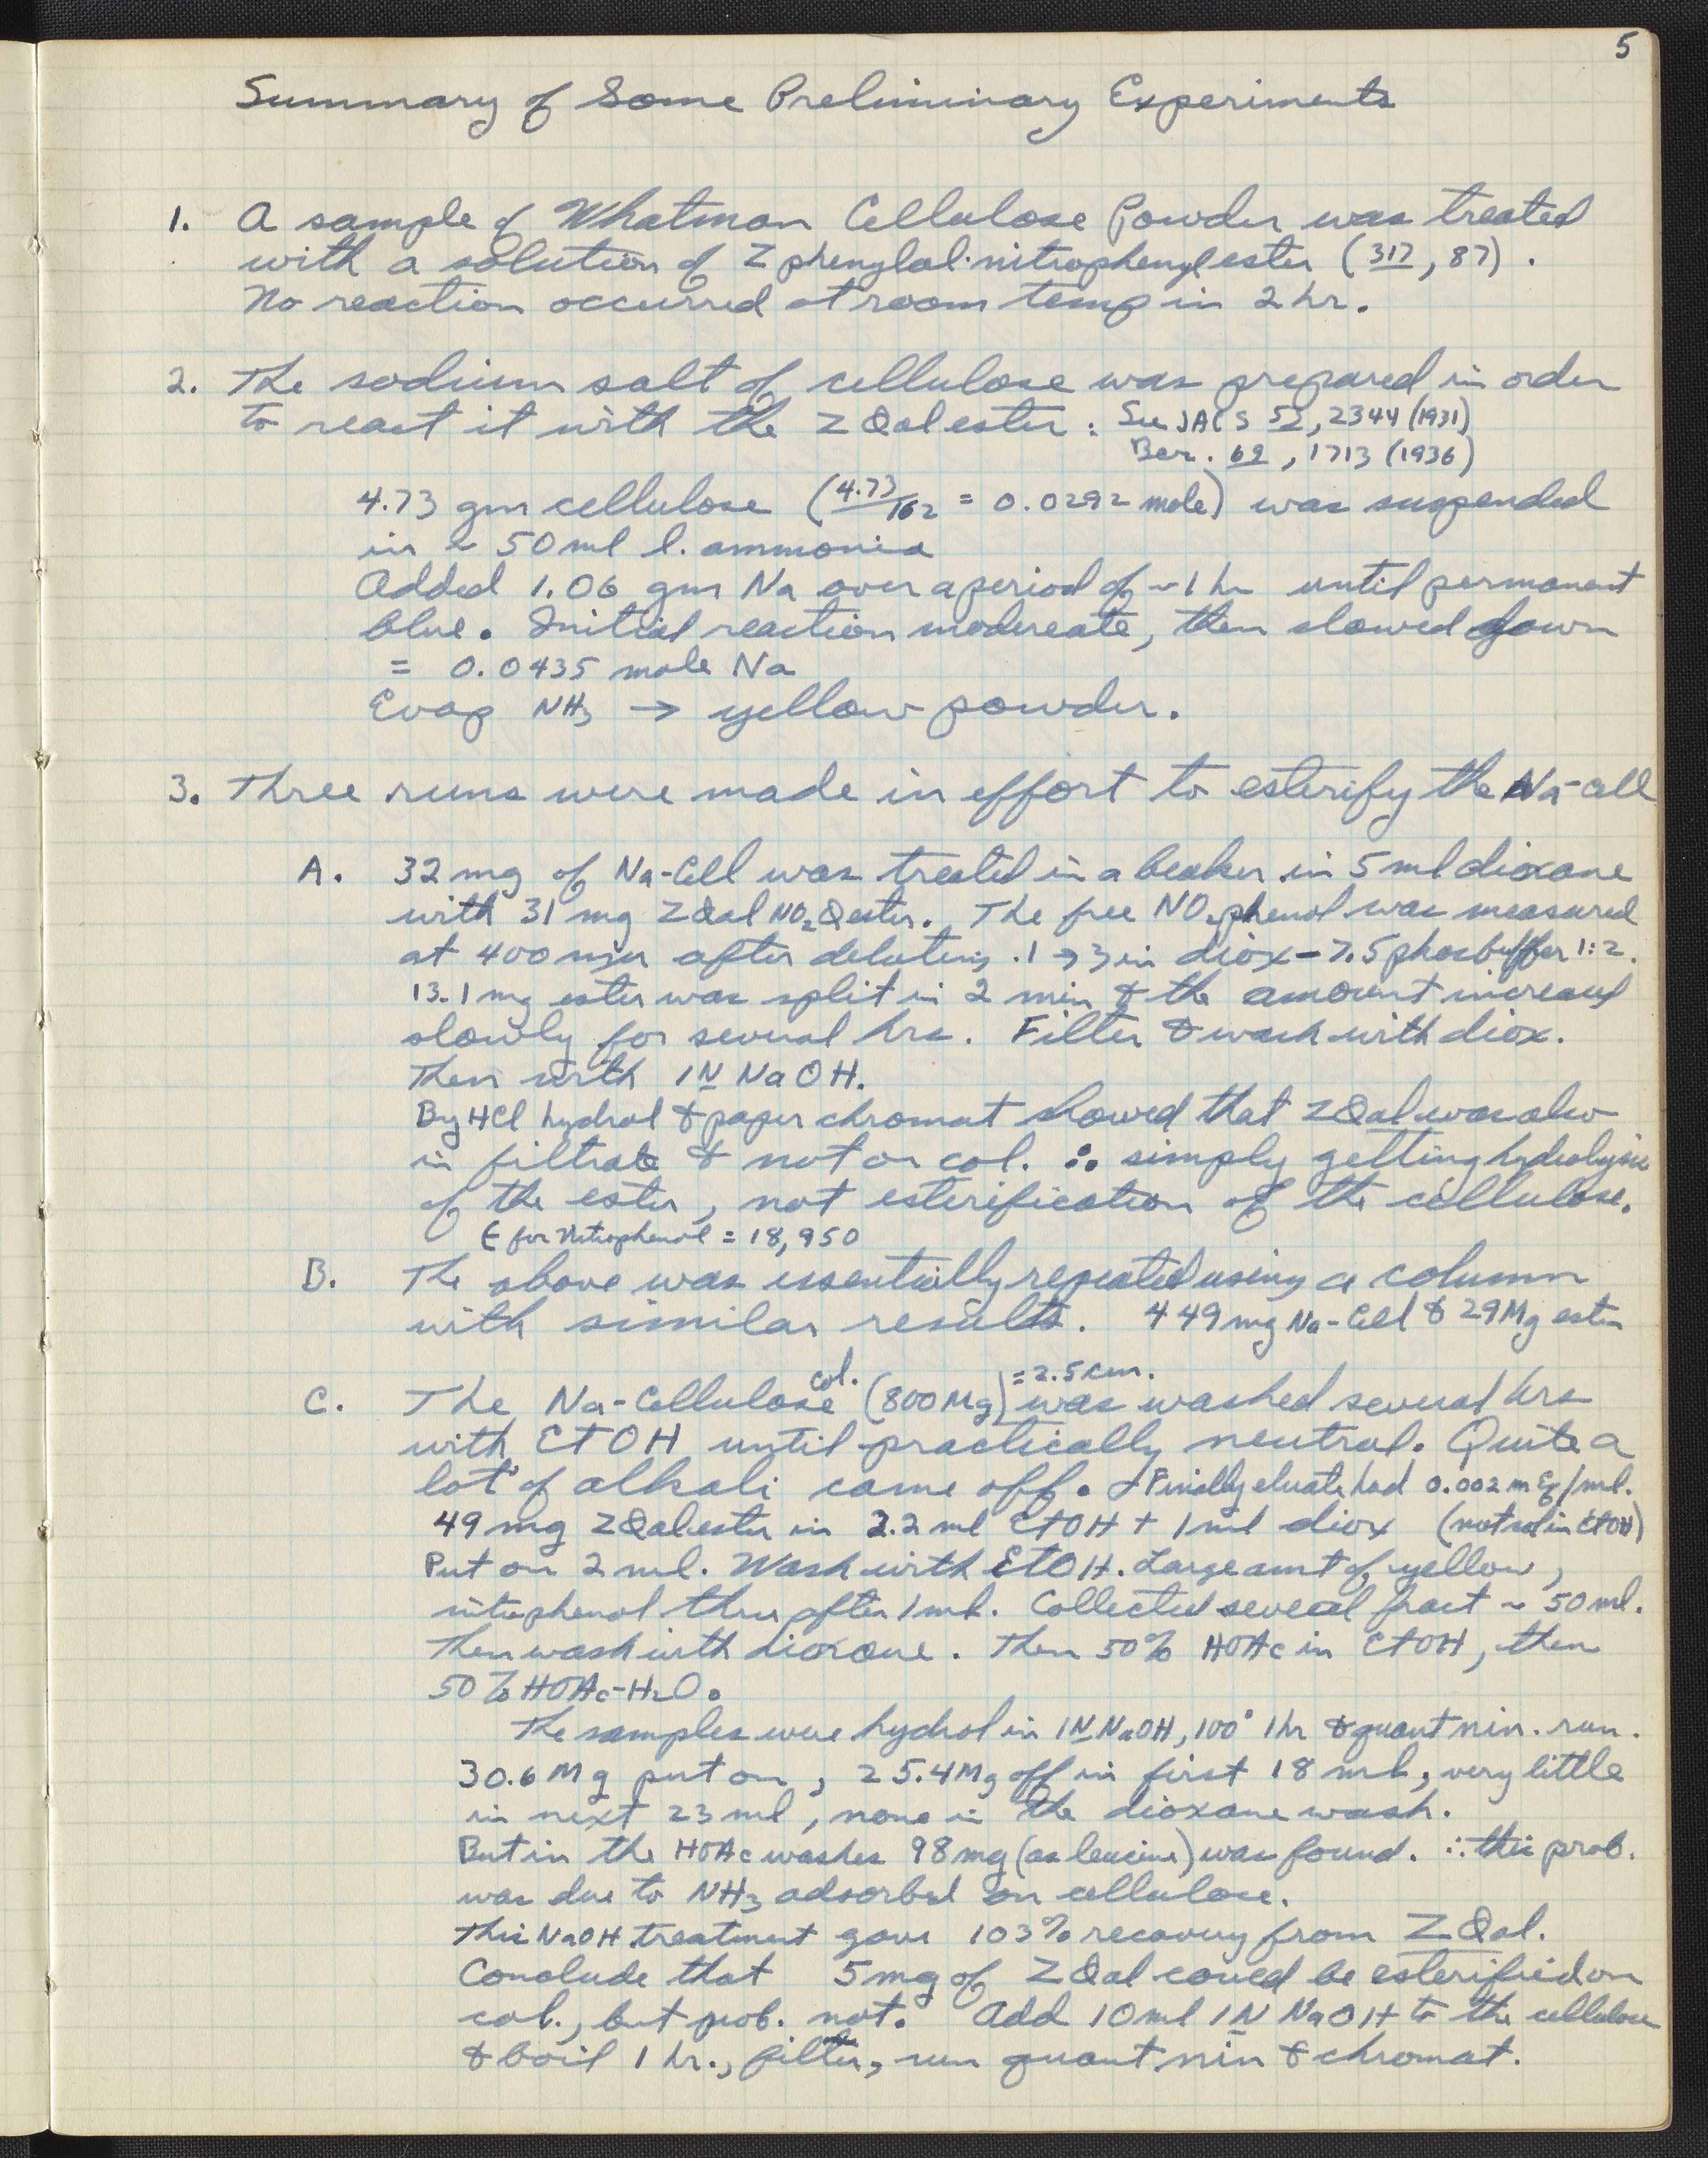 5
Summary of Some Preliminary Experiments
1. A sample of Whatman Cellulose Powder was treated
with a solution of Z phenylal·nitrophenyl ester (317, 87).
No reaction occurred at room temp in 2 hr.
2. The sodium salt of cellulose was prepared in order
to react it with the Z Φal ester: See JACS 52, 2344 (1931)
Ber. 69, 1713 (1936)
4.73 gm cellulose (4.73/162 = 0.0292 mole) was suspended
in ~ 50 ml l. ammonia
Added 1.06 gm Na over a period of ~1 hr until permanent
blue. Initial reaction modereate, then slowed down
= 0.0435 mole Na
Evap NH3 → yellow powder.
3. Three runs were made in effort to esterify the Na-cell
A. 32 mg of Na-Cell was treated in a beaker in 5 ml dioxane
with 31 mg ZΦal NO2Φester. The free NO2phenol was measured
at 400 mμ after deluting .1 → 3 in diox-7.5 phosbuffer 1:2.
13.1 mg ester was split in 2 min & the amount increased
slowly for several hrs. Filter & wash with diox.
Then with 1N NaOH.
By HCl hydrol & paper chromat showed that ZΦal was also
in filtrate & not on col. ∴ simply getting hydrolysis
of the ester, not esterification of the cellulose.
ε for Nitrophenol = 18,950
B. The above was essentially repeated using a column
with similar results. 449 mg Na-Cell & 29 Mg ester
C. The Na-Cellulose col. (800 Mg) = 2.5 cm. was washed several hrs
with EtOH until practically neutral. Quite a
lot of alkali came off. Finally eluate had 0.002 mEq/ml.
49 mg ZΦal ester in 2.2 ml EtOH + 1 ml diox (not sol in EtOH)
Put on 2 ml. Wash with EtOH. Large amt of yellow,
nitrophenol thru after 1 ml. Collected several fract ~ 50 ml.
Then wash with dioxane. Then 50% HOAc in EtOH, then
50% HOAc-H2O.
The samples were hydrol in 1N NaOH, 100° 1 hr & quant nin. run.
30.6 Mg put on, 25.4 Mg off in first 18 ml, very little
in next 23 ml, none in the dioxane wash.
But in the HOAc washes 98 mg (as leucine) was found. ∴ this prob.
was due to NH3 adsorbed on cellulose.
This NaOH treatment gave 103% recovery from ZΦal.
Conclude that 5 mg of ZΦal could be esterified on
col., but prob. not. Add 10 ml 1N NaOH to the cellulose
& boil 1 hr., filter, run quant nin & chromat.